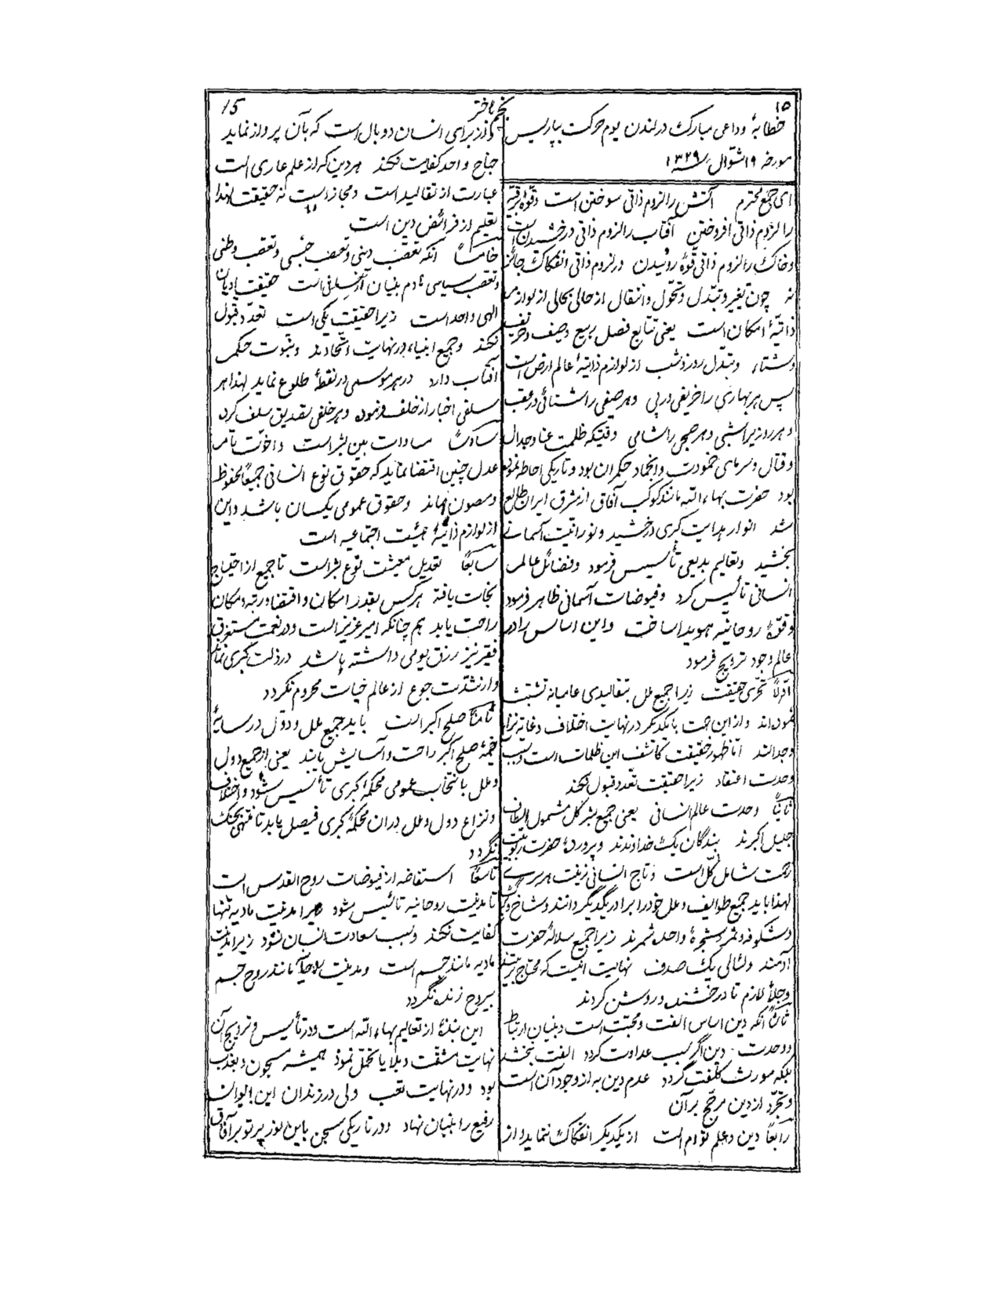 ۱۵
نجم باختر
15
خطابهٔ وداعی مبارک در لندن یوم حرکت بپاریس
مورخه ۱۹ شوال سنه ۱۳۲۹
ای جمع محترم آتش را لزوم ذاتی سوختن است و قوهٔ برقیه
را لزوم ذاتی افروختن آفتاب را لزوم ذاتی درخشیدن است
و خاک را لزوم ذاتی قوهٔ روئیدن در لزوم ذاتی انفکاک جائز
نه چون تغیر و تبدل و تحول و انتقال از حالی بحالی از لوازم
ذاتیهٔ امکان است یعنی تتابع فصل ربیع و صیف و خریف
و شتاء و تبدل روز و شب از لوازم ذاتیهٔ عالم ارض است
پس هر بهاری را خریفی در پی و هر صیفی را شتائی در عقب
و هر روزیرا شبی و هر صبحی را شامی وقتیکه ظلمت عناد و جدال
و قتال و سرمای خمودت و انجماد حکمران بود و تاریکی احاطه نموده
بود حضرت بهاءالله مانند کوکب آفاق از مشرق ایران طالع
شد انوار هدایت کبری درخشید و نورانیت آسمانی
بخشید و تعالیم بدیعی تأسیس فرمود و فضائل عالم
انسانی تأسیس کرد و فیوضات آسمانی ظاهر فرمود
و قوهٔ روحانیه هویدا ساخت و این اساس را در
عالم وجود ترویج فرمود
اولاً تحری حقیقت زیرا جمیع ملل بتقالیدی عامیانه تشبث
نموده‌اند و از این جهت با یکدیگر در نهایت اختلاف و غایت نزاع
و جدالند اما ظهور حقیقت کاشف این ظلمات است و سبب
وحدت اعتقاد زیرا حقیقت تعدد قبول نکند
ثانیاً وحدت عالم انسانی یعنی جمیع بشر کل مشمول الطاف
جلیل اکبرند بندگان یک خداوندند و پروردهٔ حضرت ربوبیت
رحمت شامل کل است و تاج انسانی زینت هر سری
لهذا باید جمیع طوائف و ملل خود را برادر یکدیگر دانند و شاخ و برگ
و شکوفه و ثمر شجرهٔ واحده شمرند زیرا جمیع سلالهٔ حضرت
آدمند و لئالی یک صدف نهایت اینست که محتاج تربیتند
و جلاء لازم تا درخشند و روشن گردند
ثالثاً آنکه دین اساس الفت و محبت است و بنیان ارتباط
و وحدت دین اگر سبب عداوت گردد الفت نبخشد
بلکه مورث کلفت گردد عدم دین به از وجود آن است
و تجرد از دین مرجح بر آن
رابعاً دین و علم توأم است از یکدیگر انفکاک ننماید و از
برای انسان دو بال است که بآن پرواز نماید
جناح واحد کفایت نکند هر دین که از علم عاری است
عبارت از تقالید است و مجاز است نه حقیقت لهذا
تعلیم از فرائض دین است
خامساً آنکه تعصب دینی و تعصب جنسی و تعصب وطنی
و تعصب سیاسی هادم بنیان انسانی است حقیقت ادیان
الهی واحد است زیرا حقیقت یکی است تعدد قبول
نکند و جمیع انبیاء در نهایت اتحادند و نبوت حکم
آفتاب دارد در هر موسمی در نقطهٔ طلوع نماید لهذا هر
سلفی اخبار از خلف فرموده و هر خلفی تصدیق سلف کرد
سادساً مساوات بین بشر است و اخوت تام
عدل چنین اقتضا نماید که حقوق نوع انسانی جمیعاً محفوظ
و مصون ماند و حقوق عمومی یکسان باشد و این
از لوازم ذاتیهٔ هیئت اجتماعیه است
سابعاً تعدیل معیشت نوع بشر است تا جمیع از احتیاج
نجات یافته هر کس بقدر امکان و اقتضا و رتبه و مکان
راحت یابد همچنانکه امیر عزیز است و در نعمت مستغرق
فقیر نیز رزق یومی داشته باشد در ذلت کبری نماند
و از شدت جوع از عالم حیات محروم نگردد
ثامناً صلح اکبر است باید جمیع ملل و دول در سایهٔ
خیمهٔ صلح اکبر راحت و آسایش یابند یعنی از جمیع دول
و ملل بانتخاب عمومی محکمهٔ کبری تأسیس شود و اختلاف
و نزاع دول و ملل در آن محکمهٔ کبری فیصل یابد تا منتهی بجنگ
نگردد
تاسعاً استفاضه از فیوضات روح القدس است
تا مدنیت روحانیه تأسیس شود زیرا مدنیت مادیه تنها
کفایت نکند و سبب سعادت انسان نشود زیرا مدنیت
مادیه مانند جسم است و مدنیت روحانیه مانند روح جسم
بیروح زنده نگردد
این نبذهٔ از تعالیم بهاءالله است و در تأسیس و ترویج آن
نهایت مشقت و بلایا تحمل نمود همیشه مسجون و معذب
بود و در نهایت تعب ولی در زندان این ایوان
رفیع را بنیان نهاد و در تاریکی سجن باین نور پرتو بر آفاق